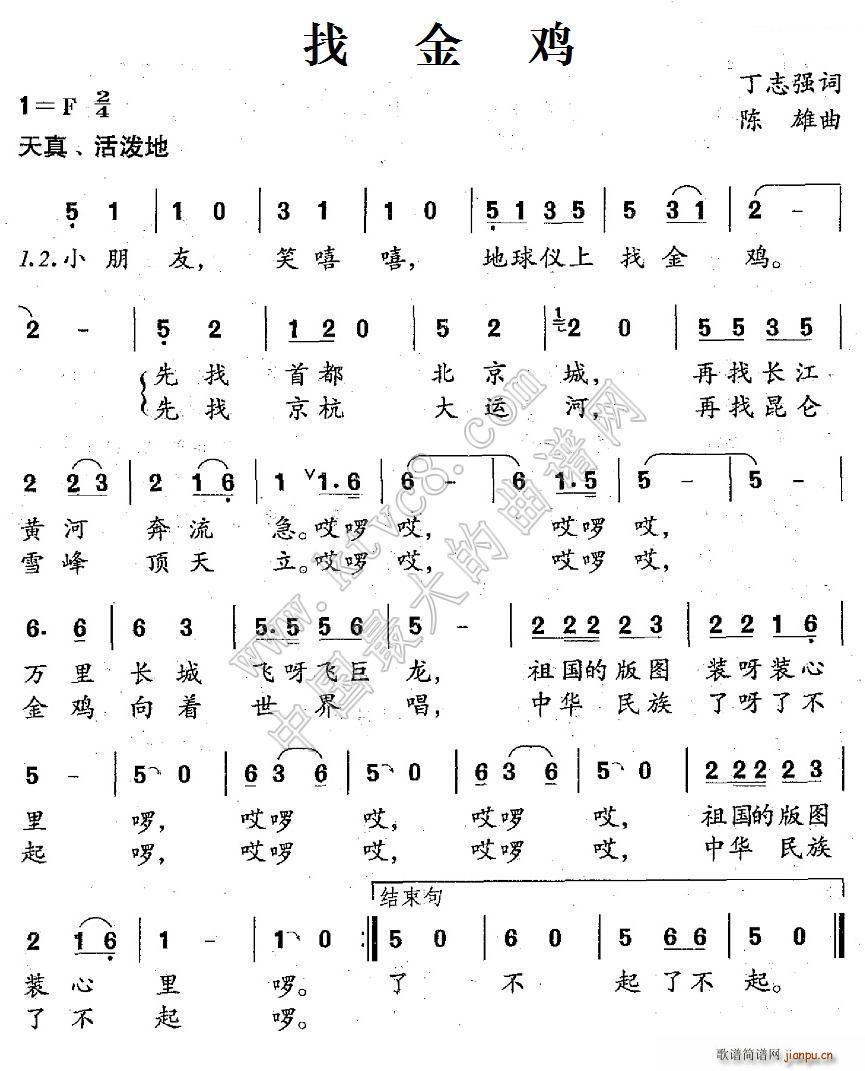 找 金 鸡
丁志强词
1=F 2/4
陈 雄曲
天真、活泼地
5 1 | 1 0 | 3 1 | 1 0 | 5 1 3 5 | 5 3 1 | 2 - |
1.2.小 朋 友, 笑 嘻 嘻, 地球仪上 找 金 鸡。
2 - | 5 2 | 1 2 0 | 5 2 | 2 0 | 5 5 3 5 |
先 找 首都 北 京 城, 再 找 长 江
先 找 京杭 大 运 河, 再 找 昆 仑
2 2 3 | 2 1 6 | 1 ∨ 1. 6 | 6 - | 6 1. 5 | 5 - | 5 - |
黄 河 奔 流 急。哎啰 哎, 哎啰 哎,
雪 峰 顶 天 立。哎啰 哎, 哎啰 哎,
6. 6 | 6 3 | 5. 5 5 6 | 5 - | 2 2 2 2 2 3 | 2 2 1 6 |
万 里 长 城 飞呀飞巨 龙, 祖国的版图 装呀装心
金 鸡 向 着 世 界 唱, 中华 民族 了呀了不
5 - | 5 0 | 6 3 6 | 5 0 | 6 3 6 | 5 0 | 2 2 2 2 2 3 |
里 啰, 哎啰 哎, 哎啰 哎, 祖国的版图
起 啰, 哎啰 哎, 哎啰 哎, 中华 民族
结束句
2 1 6 | 1 - | 1 0 :| 5 0 | 6 0 | 5 6 6 | 5 0 ‖
装 心 里 啰。 了 不 起了不 起。
了 不 起 啰。
www.ktvc8.com
中国最大的曲谱网
歌谱简谱网 jianpu.cn